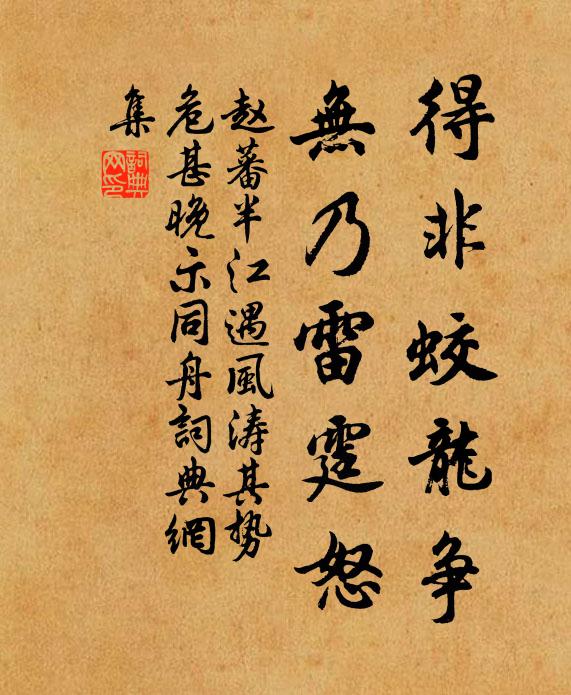 得非蛟龍争
無乃雷霆怒
赵蕃半江遇風濤其势
危甚晚示同舟詞典網
集
詞典網印